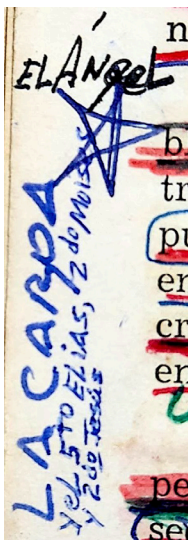 EL ÁNgeL
LA CARPA
y eL 5TO ELiAS, 2 do Moises
y 2 do Jesús
n
b
tr
pu
en
cr
en
pe
se